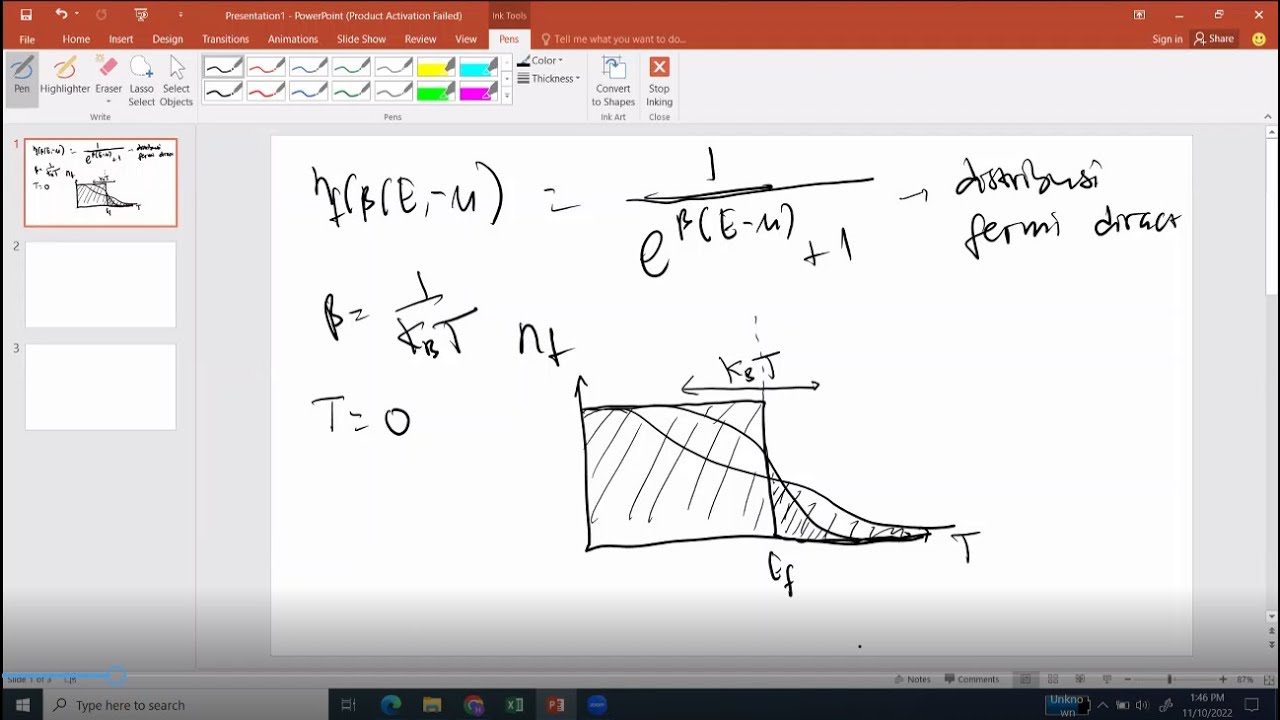 Presentation1 - PowerPoint (Product Activation Failed)
Ink Tools
File Home Insert Design Transitions Animations Slide Show Review View Pens Tell me what you want to do...
Sign in Share
Pen Highlighter Eraser Lasso Select Select Objects
Color
Thickness
Convert to Shapes
Stop Inking
Write Pens Ink Art Close
1
2
3
ηf(β(E,-μ) = 1 / e^β(E-μ) + 1 → distribusi
fermi diract
β = 1 / KBT
nf
KBT
T = 0
T
Ef
Slide 1 of 3
Notes Comments 87%
Type here to search
Unkno
wn
1:46 PM
11/10/2022